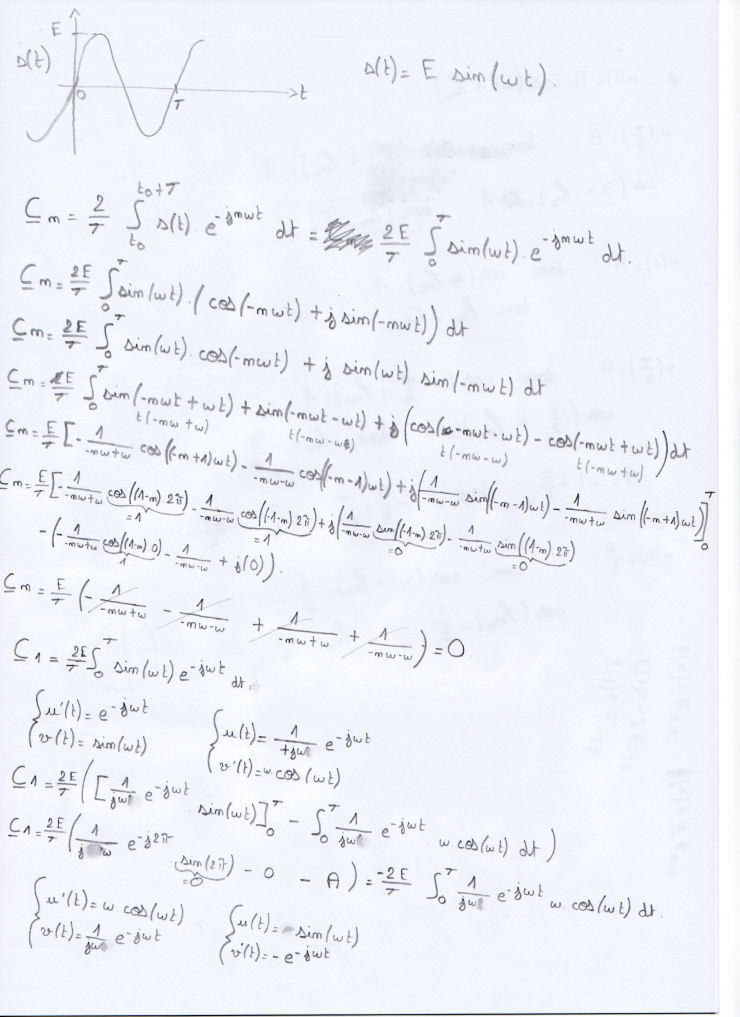 E
s(t)
O T t
s(t) = E sin(ωt).
C_m = 2/T ∫_{t0}^{t0+T} s(t) · e^{-jmωt} dt = 2E/T ∫_0^T sin(ωt) · e^{-jmωt} dt.
C_m = 2E/T ∫_0^T sin(ωt) · (cos(-mωt) + j sin(-mωt)) dt
C_m = 2E/T ∫_0^T sin(ωt) · cos(-mωt) + j sin(ωt) sin(-mωt) dt
C_m = E/T ∫_0^T sin(-mωt + ωt) + sin(-mωt - ωt) + j(cos(-mωt - ωt) - cos(-mωt + ωt)) dt
t(-mω + ω) t(-mω - ω) t(-mω - ω) t(-mω + ω)
C_m = E/T [-1/(-mω+ω) cos((-m+1)ωt) - 1/(-mω-ω) cos((-m-1)ωt) + j(1/(-mω-ω) sin((-m-1)ωt) - 1/(-mω+ω) sin((-m+1)ωt)]_0^T
C_m = E/T [-1/(-mω+ω) cos((1-m) 2π) - 1/(-mω-ω) cos((-1-m) 2π) + j(1/(-mω-ω) sin((-1-m) 2π) - 1/(-mω+ω) sin((1-m) 2π)
=1 =1 =0 =0
-(-1/(-mω+ω) cos((1-m) 0) - 1/(-mω-ω) + j(0)).
1
C_m = E/T (-1/(-mω+ω) - 1/(-mω-ω) + 1/(-mω+ω) + 1/(-mω-ω)) = 0
C_1 = 2E/T ∫_0^T sin(ωt) e^{-jωt} dt.
{u'(t) = e^{-jωt} {u(t) = 1/(+jω) e^{-jωt}
{v(t) = sin(ωt) {v'(t) = ω cos(ωt)
C_1 = 2E/T ([1/jω e^{-jωt} sin(ωt)]_0^T - ∫_0^T 1/jω e^{-jωt} ω cos(ωt) dt)
C_1 = 2E/T (1/jω e^{-j2π} sin(2π) - 0 - A) = -2E/T ∫_0^T 1/jω e^{-jωt} ω cos(ωt) dt.
=0
{u'(t) = ω cos(ωt) {u(t) = sin(ωt)
{v(t) = 1/jω e^{-jωt} {v'(t) = -e^{-jωt}